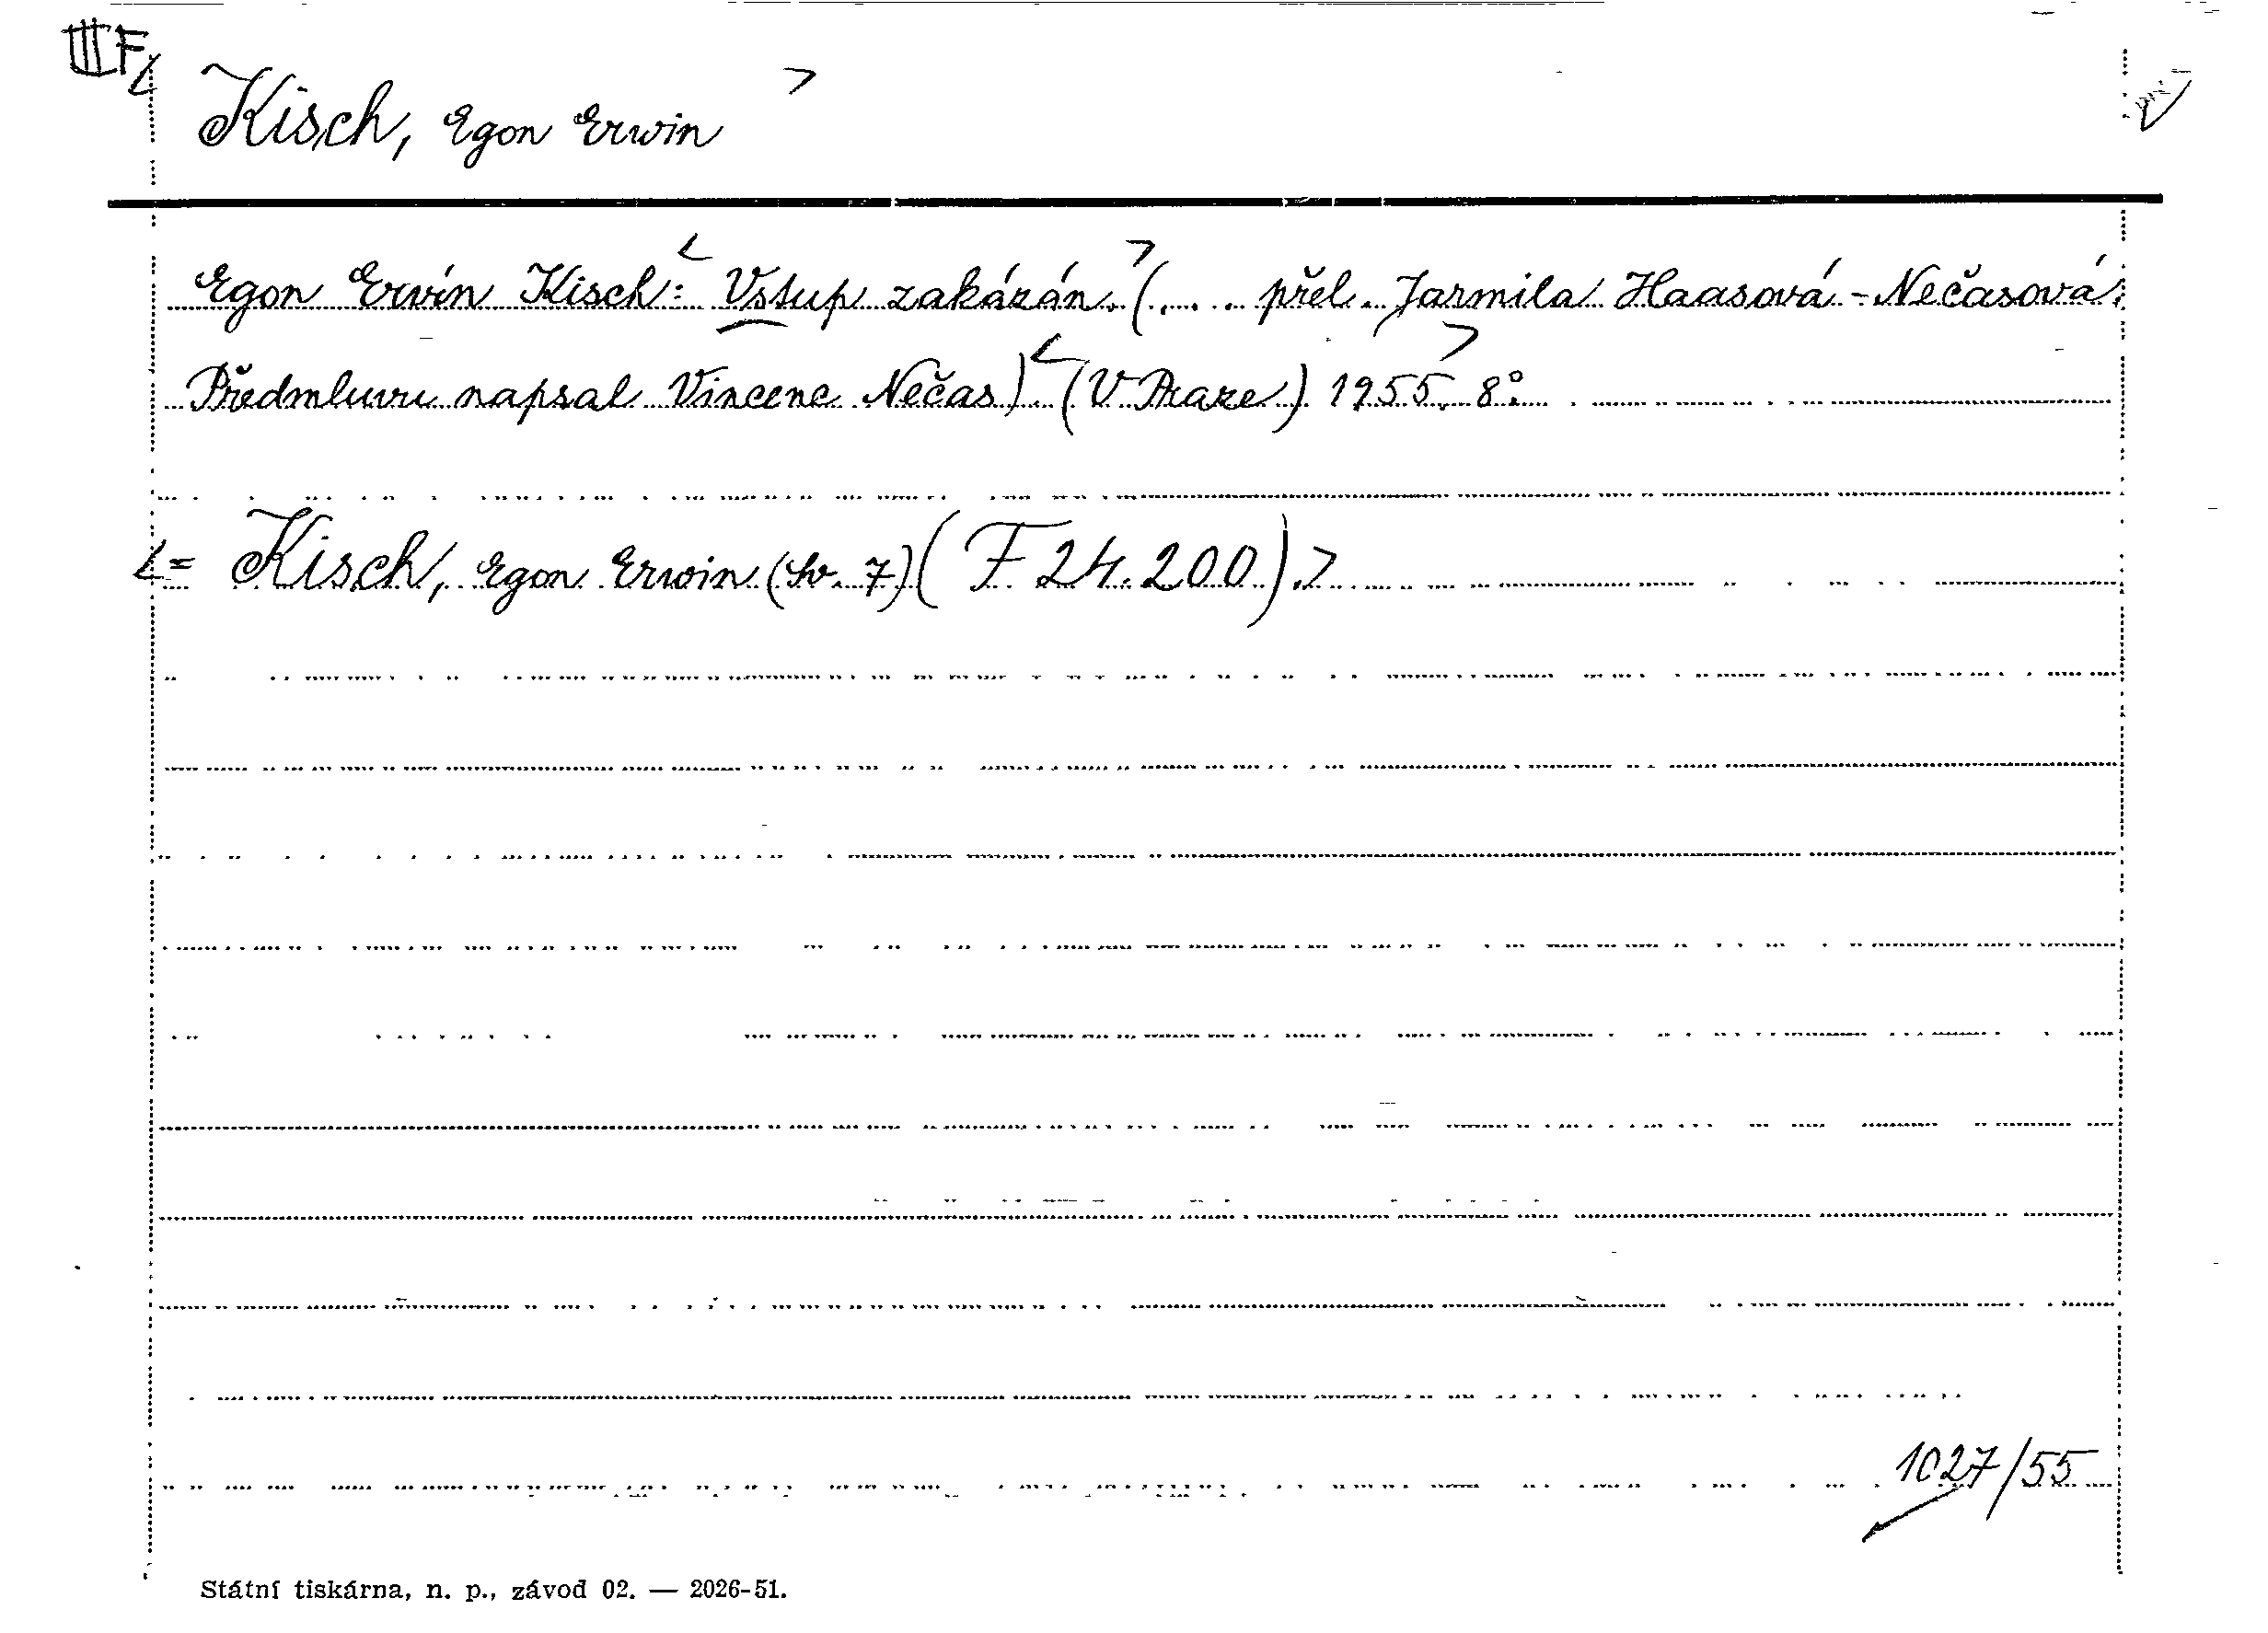 III F
Kisch, Egon Erwin >
Egon Ervín Kisch: < Vstup zakázán. > (.... přel. Jarmila Haasová-Nečasová.
Předmluvu napsal Vincenc Nečas) < (V Praze) 1955. > 8°.
<= Kisch, Egon Erwin (Sv. 7) (F 24.200). >
1027/55
Státní tiskárna, n. p., závod 02. — 2026-51.